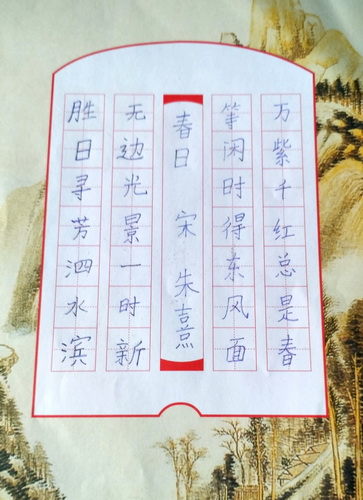 胜日寻芳泗水滨
无边光景一时新
春日 宋 朱熹
等闲时得东风面
万紫千红总是春